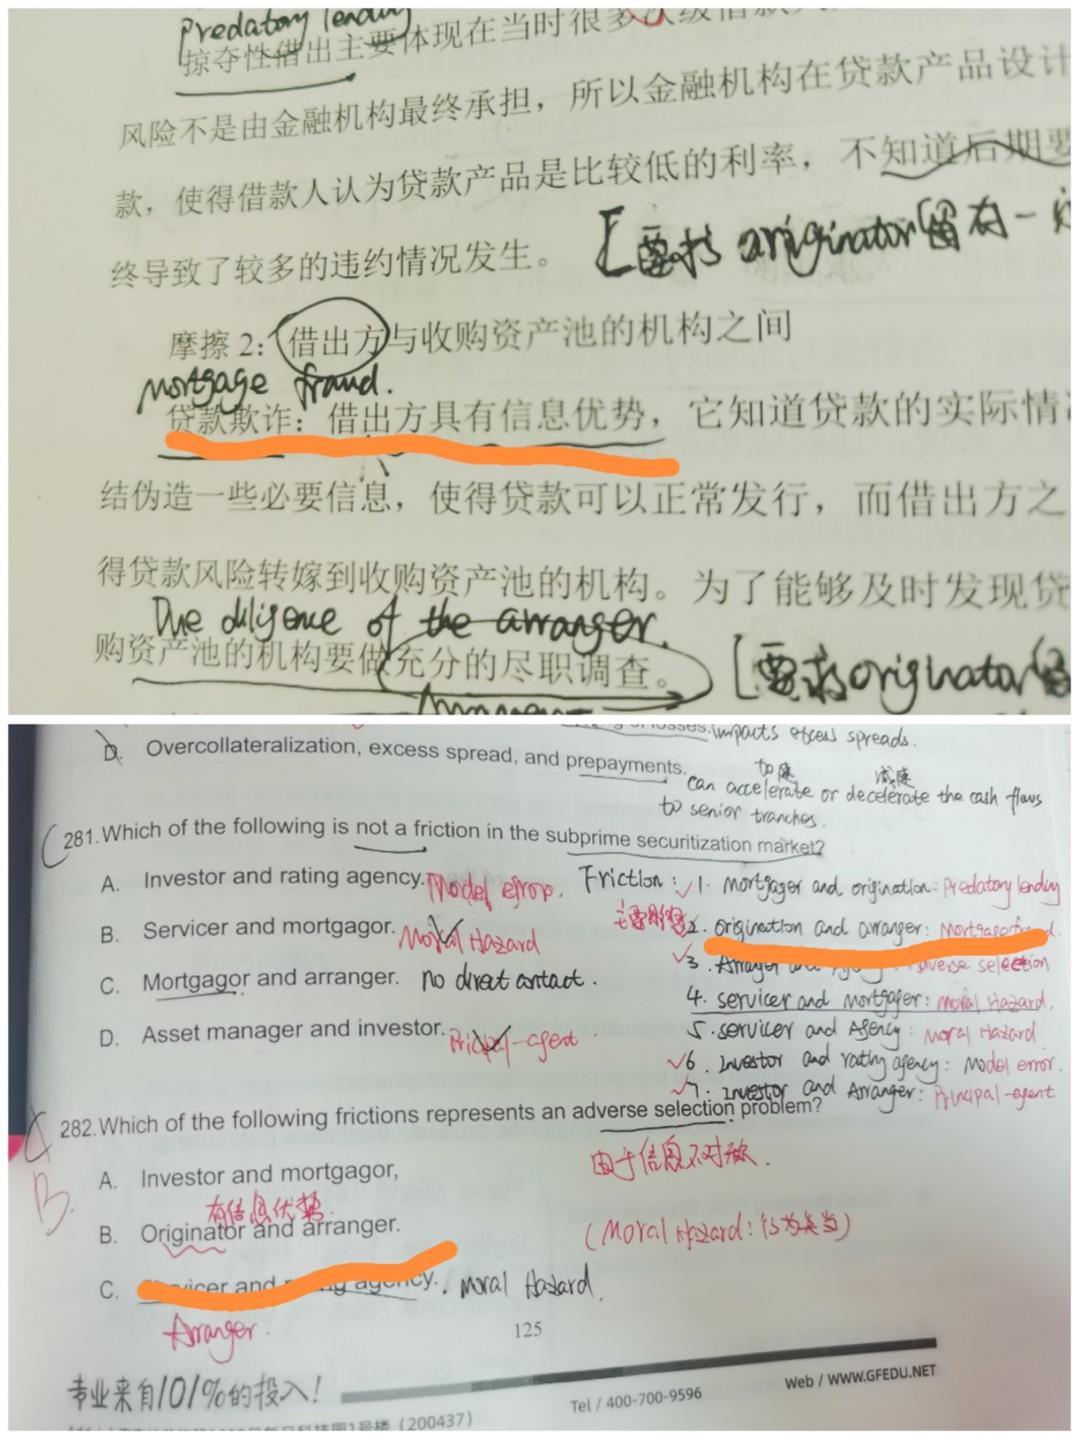 Predatory lending
掠夺性借出主要体现在当时很多次级借款人
风险不是由金融机构最终承担，所以金融机构在贷款产品设计
款，使得借款人认为贷款产品是比较低的利率，不知道后期要
终导致了较多的违约情况发生。 [要求 originator留有一
摩擦 2：借出方与收购资产池的机构之间
mortgage fraud.
贷款欺诈：借出方具有信息优势，它知道贷款的实际情
结伪造一些必要信息，使得贷款可以正常发行，而借出方之
得贷款风险转嫁到收购资产池的机构。为了能够及时发现贷
Due diligence of the arranger.
购资产池的机构要做充分的尽职调查。 [要求originator
of losses. impacts excess spreads.
D. Overcollateralization, excess spread, and prepayments.
加速 减速
can accelerate or decelerate the cash flows
to senior tranches.
281.Which of the following is not a friction in the subprime securitization market?
A. Investor and rating agency. Model error. Friction: 1. Mortgager and origination: Predatory lending
B. Servicer and mortgagor. Moral Hazard 2. origination and arranger: Mortgage fraud.
3. Arranger and Agency: Adverse selection
C. Mortgagor and arranger. no direct contact. 4. servicer and Mortgager: Moral Hazard.
D. Asset manager and investor. Pricipal-agent 5. servicer and Agency: Moral Hazard
6. Investor and rating agency: Model error.
7. Investor and Arranger: Principal-agent
282.Which of the following frictions represents an adverse selection problem?
由于信息不对称.
A. Investor and mortgagor,
B. 有信息优势.
B. Originator and arranger. (Moral Hazard: 行为失当)
C. Servicer and rating agency. Moral Hazard.
Arranger.
125
专业来自101%的投入!
Tel / 400-700-9596 Web / WWW.GFEDU.NET
(200437)